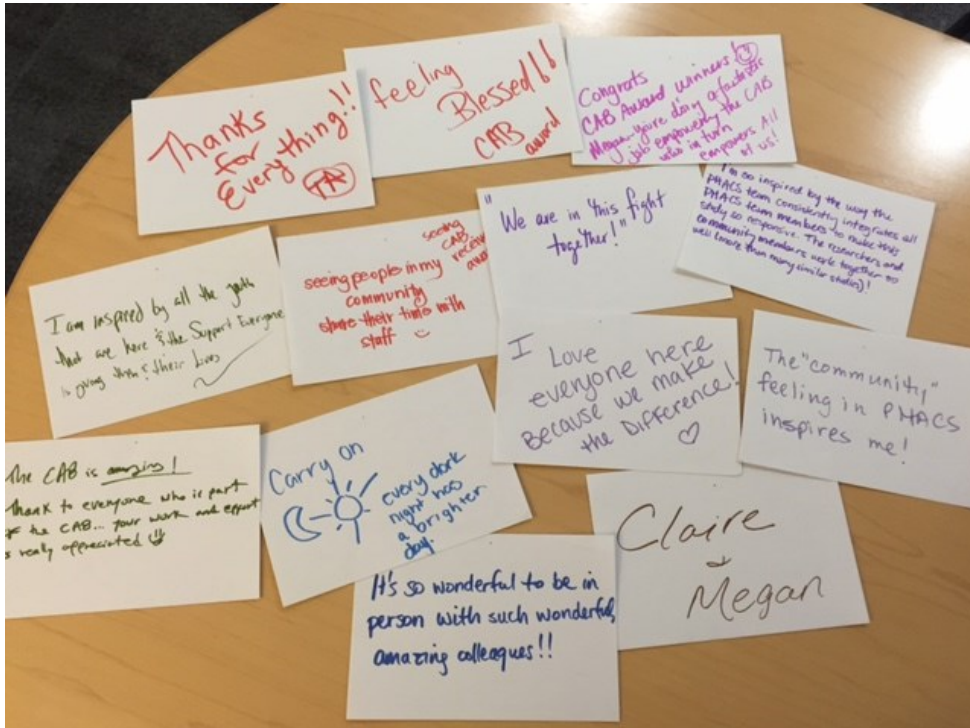 Thanks
for
Everything!!
TA
feeling
Blessed!!
CAB
award
Congrats
CAB Award winners!
Megan - You're doing a fantastic
job empowering the CAB
who in turn
empowers All
of us!
I am inspired by all the youth
that are here & the Support Everyone
is giving them & their Lives
seeing people in my
community
share their time with
staff
seeing
CAB
receive
award
"We are in this fight
together!"
I'm so inspired by the way the
PHACS team consistently integrates all
PHACS team members to make this
study so responsive. The researchers and
community members work together so
well (more than many similar studies)!
I Love
everyone here
Because we make
the Difference!
The "community"
feeling in PHACS
inspires me!
The CAB is amazing!
Thank to everyone who is part
of the CAB... your work and effort
is really appreciated
Carry on
every dark
night has
a brighter
day.
It's so wonderful to be in
person with such wonderful,
amazing colleagues!!
Claire
&
Megan